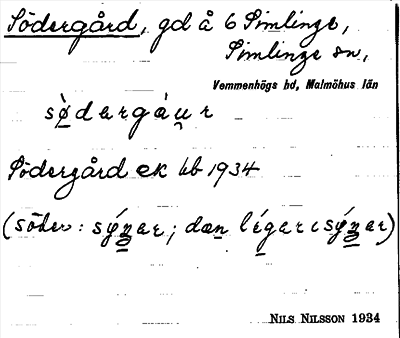 Södergård, gd å 6 Simlinge,
Simlinge sn,
Vemmenhögs hd, Malmöhus län
sø̀dargȧu̯r
Södergård ek kb 1934
(söder: sýnar; dæn légar ı sýnar)
NILS NILSSON 1934